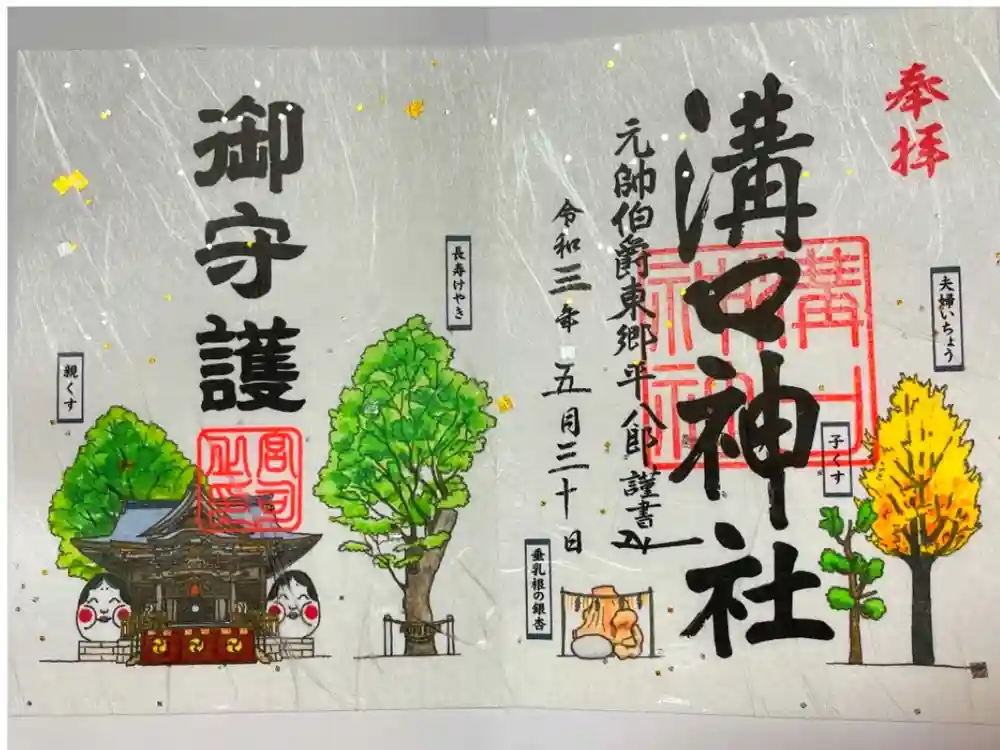 奉拝
溝口神社
元帥伯爵東郷平八郎 謹書
令和三年 五月三十日
夫婦いちょう
子くす
垂乳根の銀杏
御守護
長寿けやき
親くす